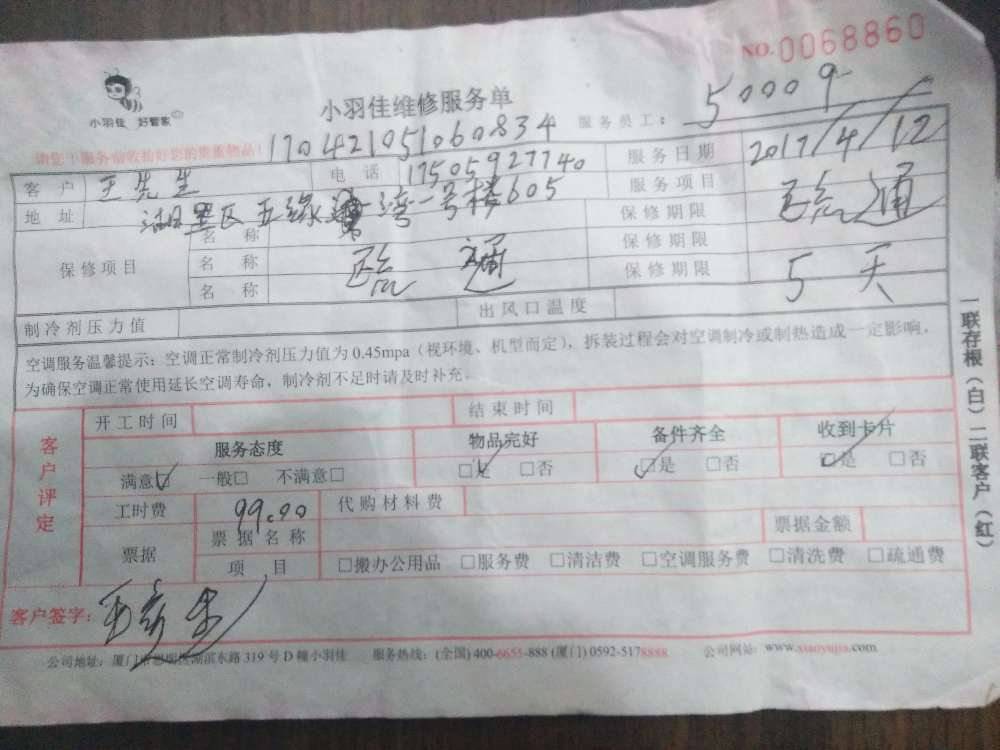 NO.0068860
小羽佳 好管家
小羽佳维修服务单
服务员工: 50009
请您于服务前收拾好您的贵重物品! 170421051060834
客户 王先生 电话 17505927740 服务日期 2017/4/12
地址 湖里区五缘湾一号楼605 服务项目 疏通
保修项目 名称 保修期限
名称 疏通 保修期限
名称 保修期限 5天
制冷剂压力值 出风口温度
空调服务温馨提示:空调正常制冷剂压力值为0.45mpa(视环境、机型而定),拆装过程会对空调制冷或制热造成一定影响,
为确保空调正常使用延长空调寿命,制冷剂不足时请及时补充。
客户评定
开工时间 结束时间
服务态度 物品完好 备件齐全 收到卡片
满意☑ 一般□ 不满意□ ☑是 □否 ☑是 □否 ☑是 □否
工时费 99.00 代购材料费
票据 票据名称 票据金额
项目 □搬办公用品 □服务费 □清洁费 □空调服务费 □清洗费 □疏通费
客户签字:
公司地址:厦门市思明区湖滨东路319号D幢小羽佳 服务热线:(全国)400-6655-888 (厦门)0592-5178888 公司网站:www.xiaoyujia.com
一联存根(白)二联客户(红)